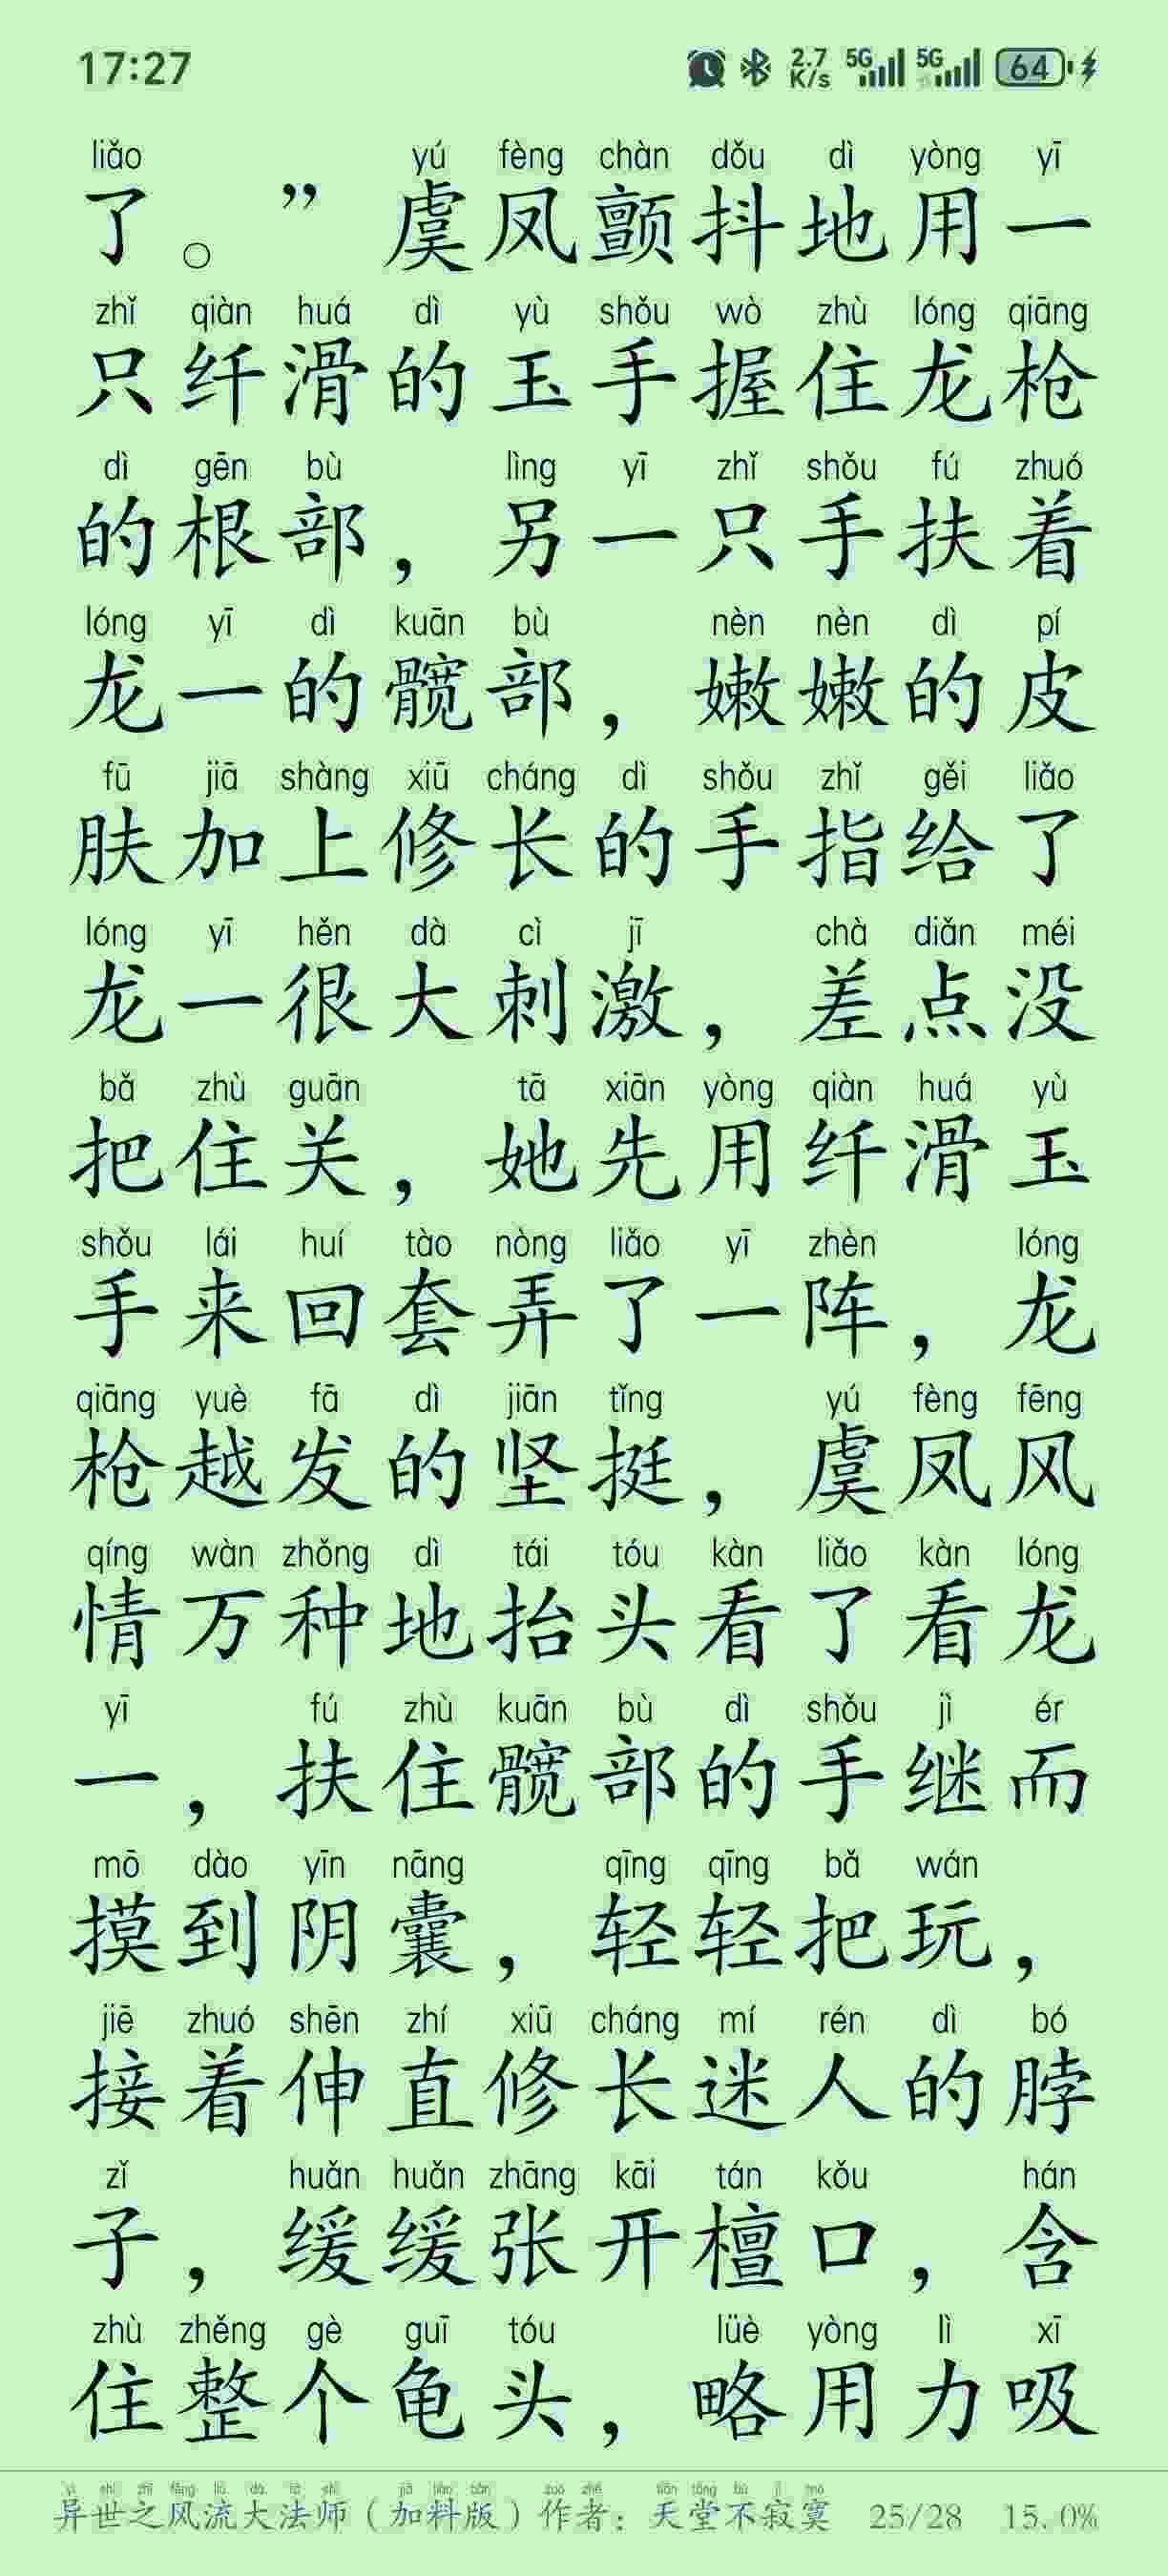 17:27 2.7 K/s 5G 5G 64
liǎo yú fèng chàn dǒu dì yòng yī
了。”虞凤颤抖地用一
zhǐ qiàn huá dì yù shǒu wò zhù lóng qiāng
只纤滑的玉手握住龙枪
dì gēn bù lìng yī zhǐ shǒu fú zhuó
的根部，另一只手扶着
lóng yī dì kuān bù nèn nèn dì pí
龙一的髋部，嫩嫩的皮
fū jiā shàng xiū cháng dì shǒu zhǐ gěi liǎo
肤加上修长的手指给了
lóng yī hěn dà cì jī chà diǎn méi
龙一很大刺激，差点没
bǎ zhù guān tā xiān yòng qiàn huá yù
把住关，她先用纤滑玉
shǒu lái huí tào nòng liǎo yī zhèn lóng
手来回套弄了一阵，龙
qiāng yuè fā dì jiān tǐng yú fèng fēng
枪越发的坚挺，虞凤风
qíng wàn zhǒng dì tái tóu kàn liǎo kàn lóng
情万种地抬头看了看龙
yī fú zhù kuān bù dì shǒu jì ér
一，扶住髋部的手继而
mō dào yīn náng qīng qīng bǎ wán
摸到阴囊，轻轻把玩，
jiē zhuó shēn zhí xiū cháng mí rén dì bó
接着伸直修长迷人的脖
zǐ huǎn huǎn zhāng kāi tán kǒu hán
子，缓缓张开檀口，含
zhù zhěng gè guī tóu lüè yòng lì xī
住整个龟头，略用力吸
异世之风流大法师（加料版）作者：天堂不寂寞 25/28 15.0%